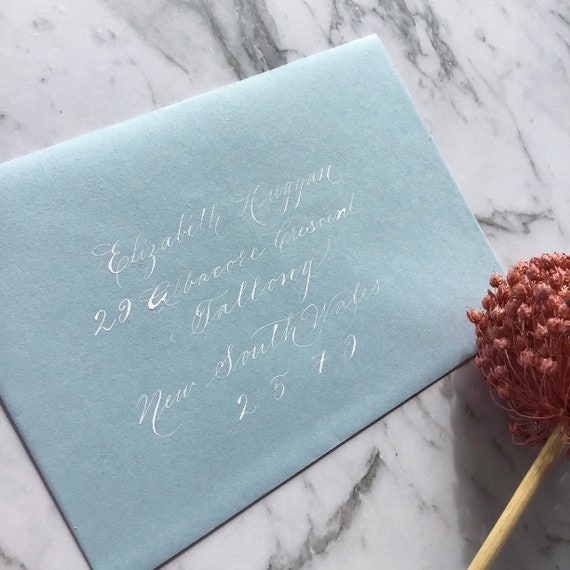 Elizabeth Huggan
29 Albacore Crescent
Tallong
New South Wales
2579